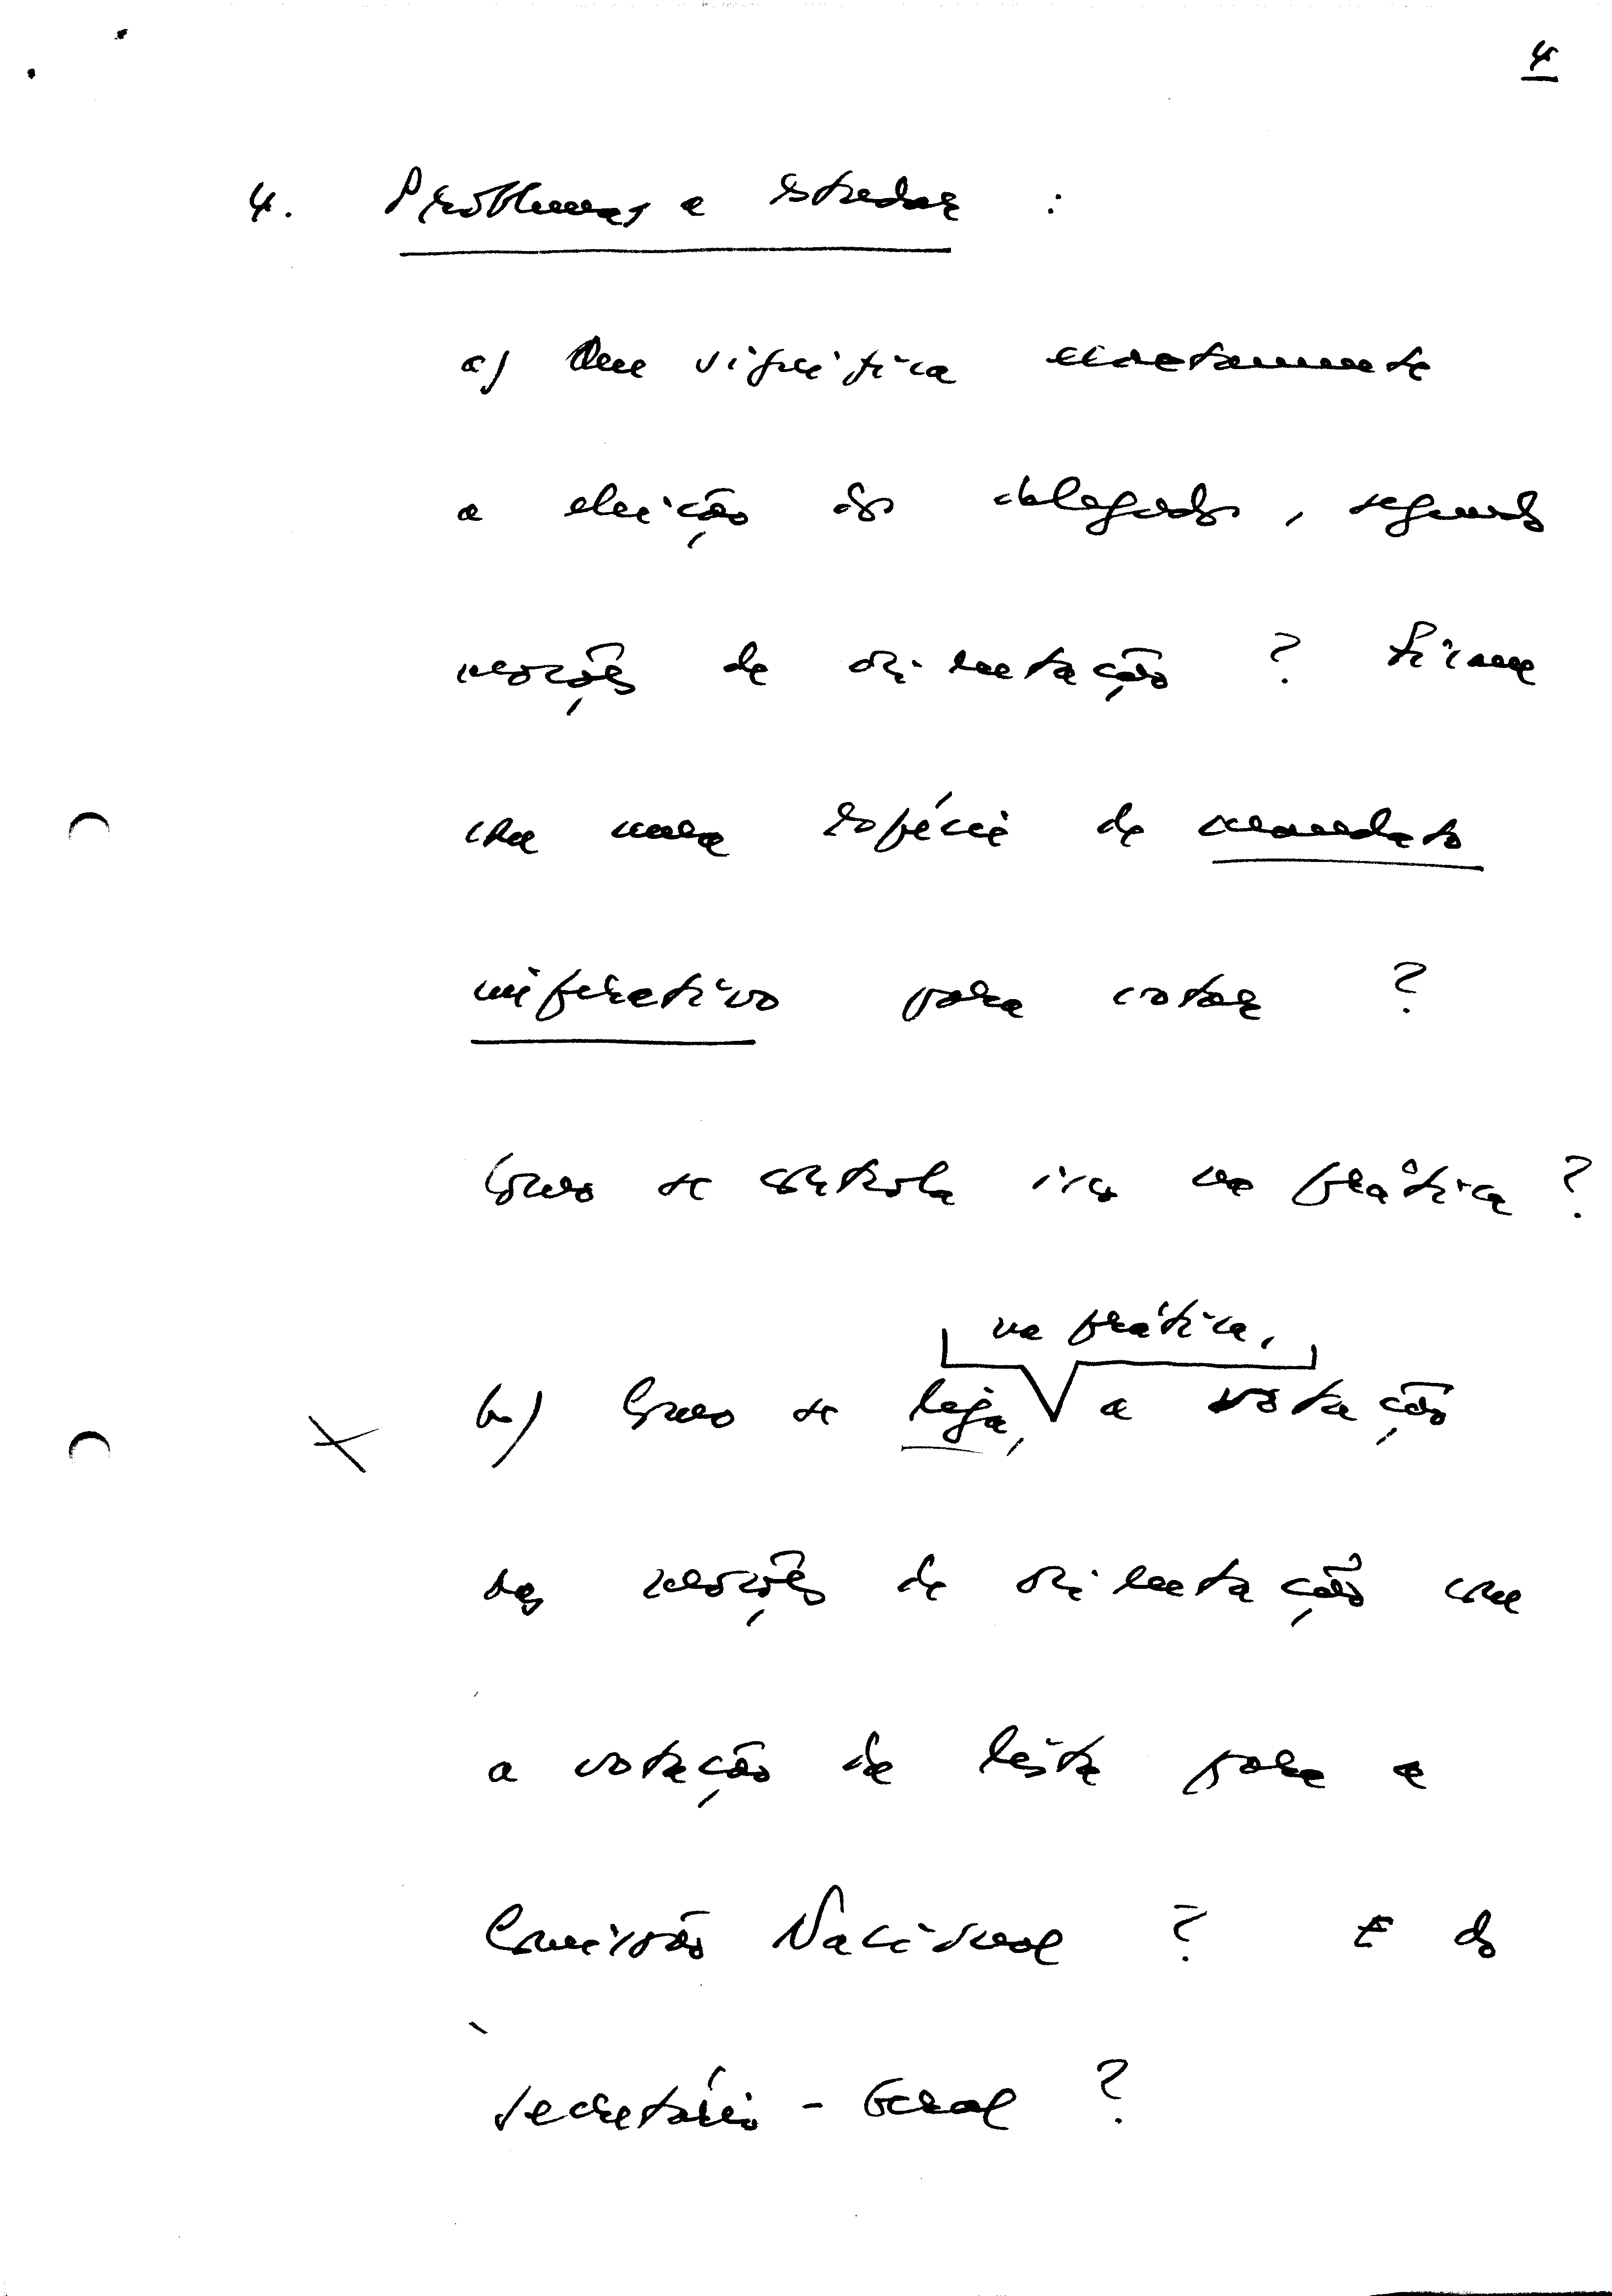 4
4. Problemas a estudar :
a) Que significa exactamente
a eleição dos delegados, segundo
moções de orientação ? Ficam
com uma espécie de mandato
imperativo para votar ?
Como se controla isso na prática ?
na prática,
b) Como se liga, a votação
das moções de orientação com
a votação da lista para a
Comissão Nacional ? E do
Secretário-Geral ?